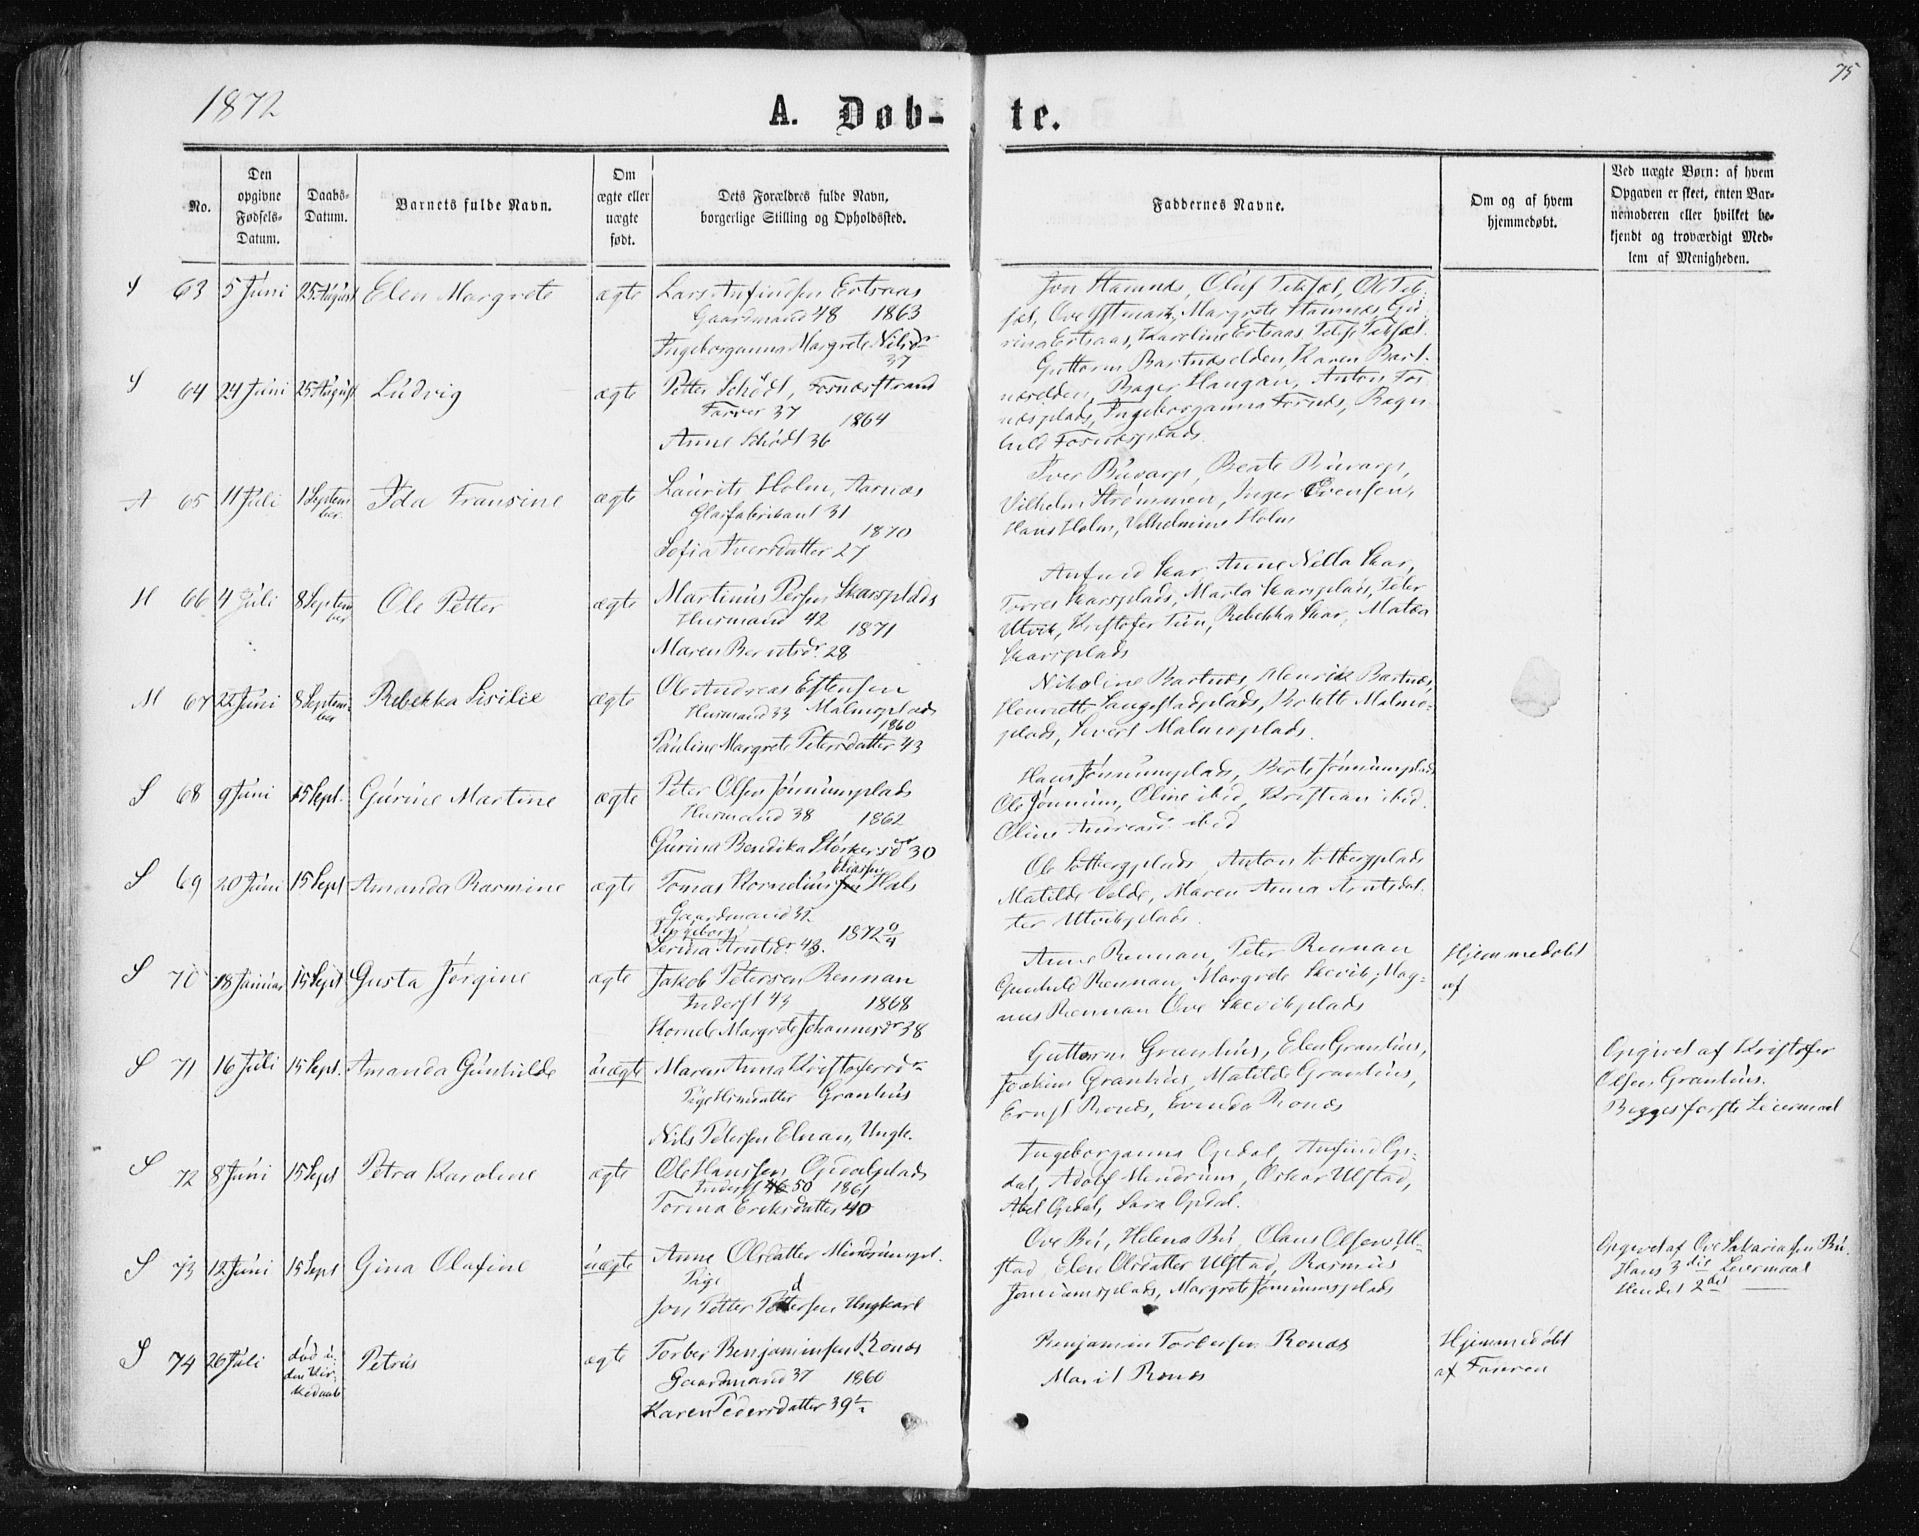 1872
A. Døb-
te.
75
No.
Den opgivne Fødsels-Datum.
Daabs-Datum.
Barnets fulde Navn.
Om ægte eller uægte født.
Dets Forældres fulde Navn, borgerlige Stilling og Opholdssted.
Faddernes Navne.
Om og af hvem hjemmedøbt.
Ved uægte Børn: af hvem
Opgaven er skeet, enten Bar-
nemoderen eller hvilket be-
kjendt og troværdigt Med-
lem af Menigheden.
S 63 5 Juni 25 August Elen Margrete ægte Lars Anfindsen Ertsaas
Gaardmand 48 1863
Ingeborganna Margrete Nilsdr
37
Jon Hamnes, Oluf
Margrete
rina Ertsaas, Karoline Ertsaas
S 64 24 Juni 25 August Ludvig ægte Petter Schødt, Fornæsstrand
Farver 37 1864
Anne Schødt 36
Guttorm Bartnæselden, Karen Bart-
næselden, Haugan, Anton For-
næsplads, Ingeborganna Fornæs, Ragn-
hild Fornæsplads.
A 65 11 Juli 1 Septem-
ber Ida Fransine ægte Laurits Holm, Aarnæs
Glasfabrikant 31
1870
Sofia Iversdatter 27
Iver Buvarp, Beate Buvarp,
Vilhelm Strømmen, Inger Evensen,
Hans Holm, Vilhelmine Holm
H 66 4 Juli 8 Septem-
ber Ole Petter ægte Martinus Persen Skarsplads
Husmand 42
1871
Maren Berntsdr 28
Anfind Skar, Anne Nilla Skar,
Torres Skarsplads, Marta Skarsplads, Peter
Utvik, Kristofer Rebekka Skar,
Skarsplads
M 67 22 Juni 8 Septem-
ber Rebekka Sisilie ægte Ole Andreas Estensen
Husmand 33 Malmoplads
1860
Pauline Margrete Petersdatter 43
Nikoline Bartnæs, Henrik Bartnæs,
Henriette Langstadplads, Malmo-
plads, Sivert Malmoplads.
S 68 9 Juni 15 Sept. Gurine Martine ægte Peter Olsen Jønnumplads
Husmand 38 1862
Gurina Bendika Størkersdr 30
Hans Jønnumplads, Berte Jønnumplads
Ole Jønnum, Oline ibid, Kristian ibid.
Oline ibid
S 69 20 Juni 15 Sept Amanda Rasmine ægte Tomas Kornelius Eliassen Hals
Gaardmand 35
Ingeborg 1872
Serina Arntsdr 43.
Ole Solbergplads, Anton Solbergplads
Matilde Velde, Maren Anna Arntsdat-
ter Utvikplads.
S 70 18 Januar 15 Sept Gusta Jørgine ægte Jakob Petersen Rennan
Inderst 43 1868
Kornele Margrete Johannesdr 38
Anne Rennan, Peter Rennan
Gunhild Rennan, Margrete Skevik, Mag-
nus Rennan Ove Skevikplads
Hjemmedøbt
af
S 71 16 Juli 15 Sept. Amanda Gunhilde uægte Maren Anna Kristofersdr
Pige Granhus
Nils Petersen Elnan, Ungk.
Guttorm Granhus, Elen Granhus,
Joakim Granhus, Matilde Granhus,
Ernst Ronæs, Ronæs
Opgivet af Kristofer
Olsen Granhus.
Begges første Leiermaal
S 72 8 Juni 15 Sept Petra Karoline ægte Ole Hanssen Opdalplads
Inderst 50 1861
Torina Eriksdatter 40
Ingeborganna Opdal, Anfind Op-
dal, Adolf Oskar Ulstad,
Abel Opdal, Sara Opdal.
S 73 12 Juni 15 Sept Gina Olafine uægte Anne Olsdatter
Pige
Jon Petter Pedersen Ungkarl
Ove Bu, Helena Bu, Claus Olsen Ul-
stad, Elen Olsdatter Ulstad, Rasmus
Jønnumsplads, Margrete Jønnumsplads
Opgivet af Ove Sakariassen Bu.
Hans 3die Leiermaal
Hendes 2det ——
S 74 26 Juli død u-
den Kir-
kedaab Petrus ægte Torber Benjaminsen Ronæs
Gaardmand 37 1860
Karen Pedersdatter 39½
Benjamin Torbersen Ronæs
Marit Ronæs
Hjemmedøbt
af Faderen